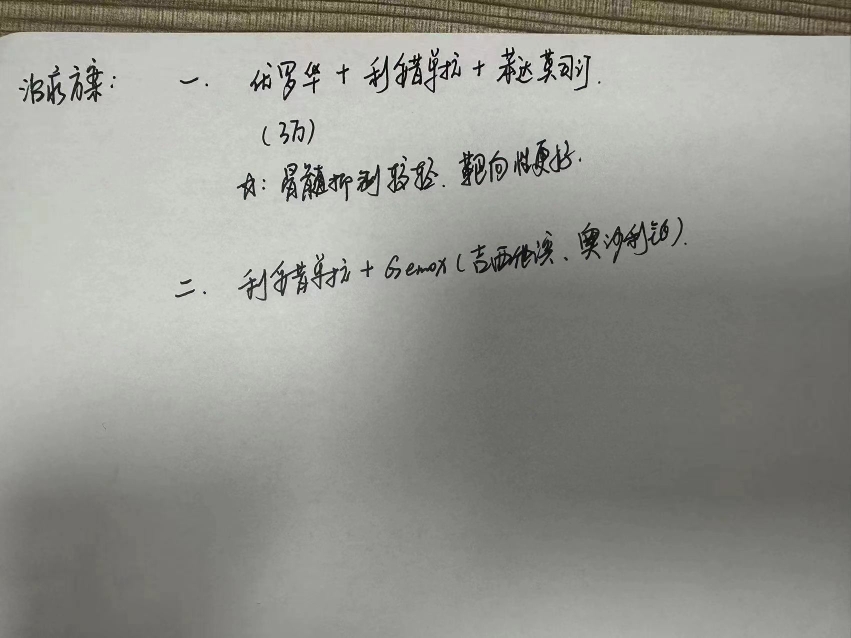 治疗方案： 一. 优罗华 + 利妥昔单抗 + 苯达莫司汀.
(3万)
优：骨髓抑制较轻. 靶向性更好.
二. 利妥昔单抗 + Gemox (吉西他滨、奥沙利铂).